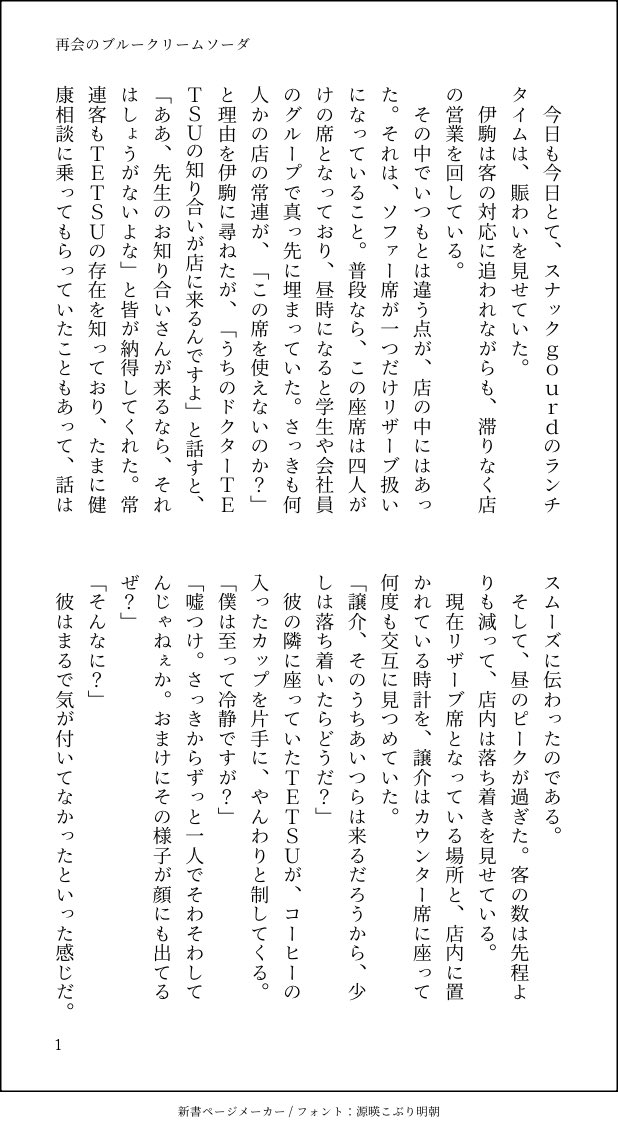 再会のブルークリームソーダ
　今日も今日とて、スナックｇｏｕｒｄのランチ
タイムは、賑わいを見せていた。
　伊駒は客の対応に追われながらも、滞りなく店
の営業を回している。
　その中でいつもとは違う点が、店の中にはあっ
た。それは、ソファー席が一つだけリザーブ扱い
になっていること。普段なら、この座席は四人が
けの席となっており、昼時になると学生や会社員
のグループで真っ先に埋まっていた。さっきも何
人かの店の常連が、「この席を使えないのか？」
と理由を伊駒に尋ねたが、「うちのドクターＴＥ
ＴＳＵの知り合いが店に来るんですよ」と話すと、
「ああ、先生のお知り合いさんが来るなら、それ
はしょうがないよな」と皆が納得してくれた。常
連客もＴＥＴＳＵの存在を知っており、たまに健
康相談に乗ってもらっていたこともあって、話は
スムーズに伝わったのである。
　そして、昼のピークが過ぎた。客の数は先程よ
りも減って、店内は落ち着きを見せている。
　現在リザーブ席となっている場所と、店内に置
かれている時計を、譲介はカウンター席に座って
何度も交互に見つめていた。
「譲介、そのうちあいつらは来るだろうから、少
しは落ち着いたらどうだ？」
　彼の隣に座っていたＴＥＴＳＵが、コーヒーの
入ったカップを片手に、やんわりと制してくる。
「僕は至って冷静ですが？」
「嘘つけ。さっきからずっと一人でそわそわして
んじゃねぇか。おまけにその様子が顔にも出てる
ぜ？」
「そんなに？」
　彼はまるで気が付いてなかったといった感じだ。
1
新書ページメーカー / フォント：源暎こぶり明朝